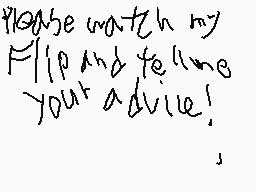 Please watch my
Flip and tell me
your advice!